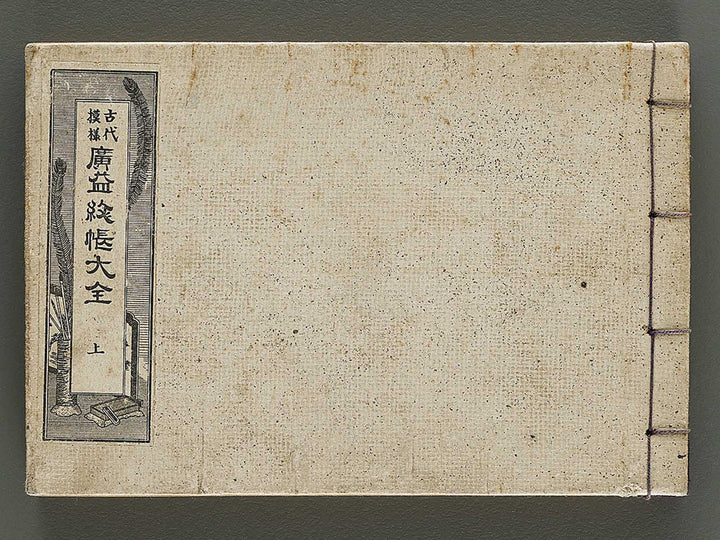 古代
模様
廣益紋帳大全
上